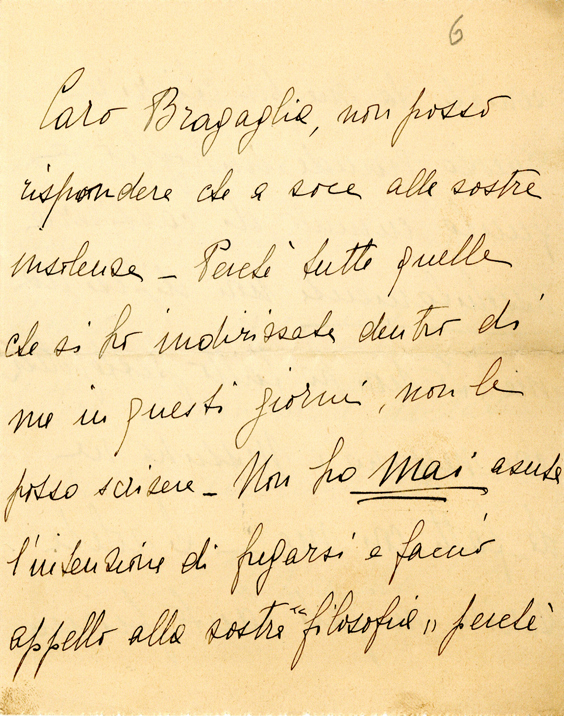 6
Caro Bragaglia, non posso
rispondere che a voce alle vostre
insolenze – Perché tutte quelle
che vi ho indirizzate dentro di
me in questi giorni, non le
posso scrivere – Non ho mai avuta
l'intenzione di fregarvi e faccio
appello alla vostra "filosofia" perché